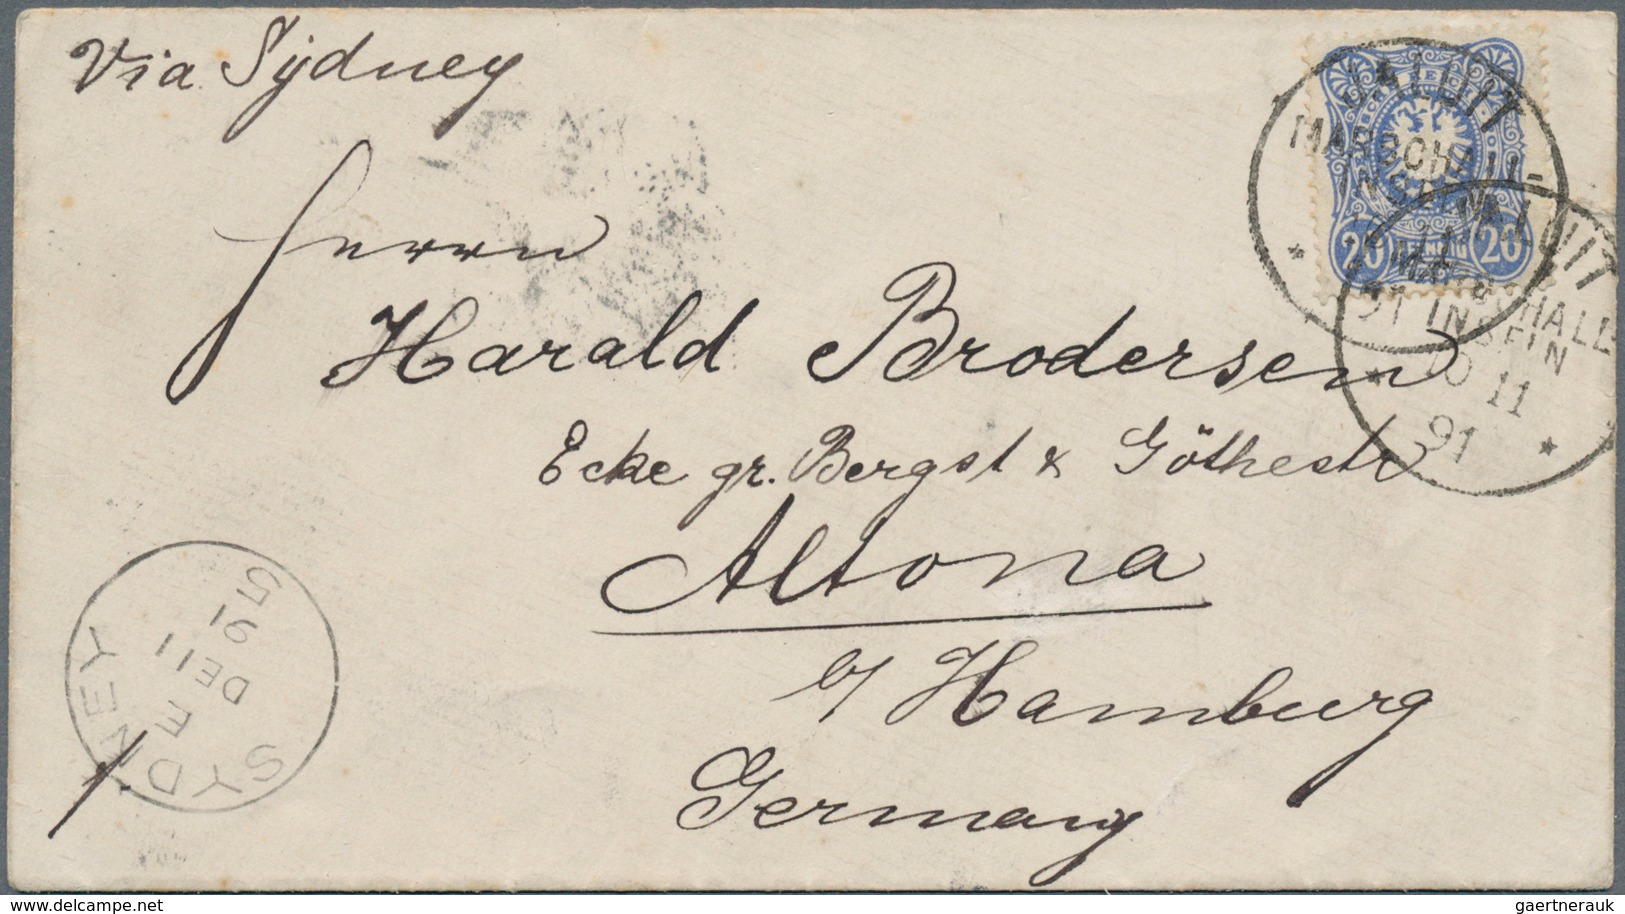 Via Sydney
JALUIT
MARSCHALL-
INSELN
20 PFENNIG 20
JALUIT
MARSCHALL-
INSELN
10 11
91
Herrn
Harald Brodersen
Ecke gr. Bergst & Göthestr
Altona
b/ Hamburg
Germany
SYDNEY
E
DE 11
91
5
1.
www.delcampe.net
gaertnerauk